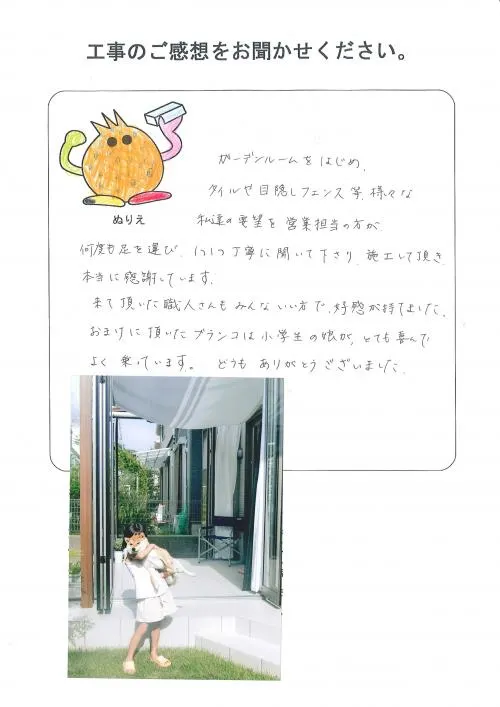 工事のご感想をお聞かせください。
ぬりえ
ガーデンルームをはじめ、
タイルや目隠しフェンス等、様々な
私達の要望を営業担当の方が
何度も足を運び、1つ1つ丁寧に聞いて下さり、施工して頂き
本当に感謝しています。
来て頂いた職人さんもみんないい方で、好感が持てました。
おまけに頂いたブランコは小学生の娘が、とても喜んで
よく乗っています。 どうもありがとうございました。